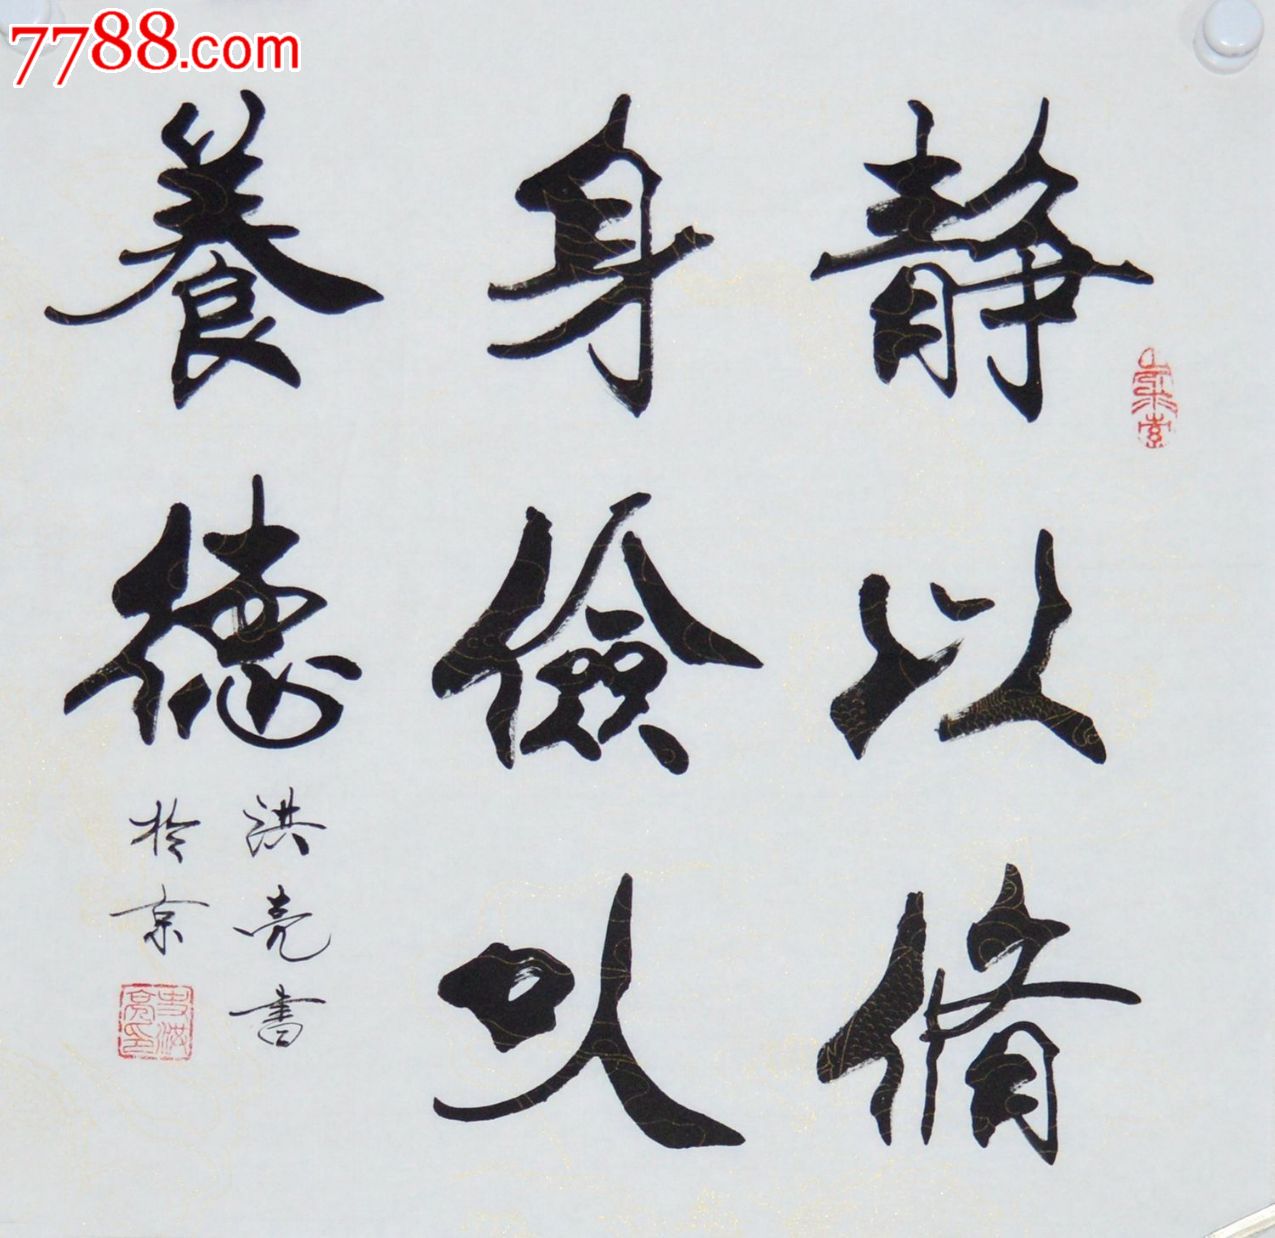 7788.com
静以脩
身儉以
養德
洪亮書
於京
史洪亮印